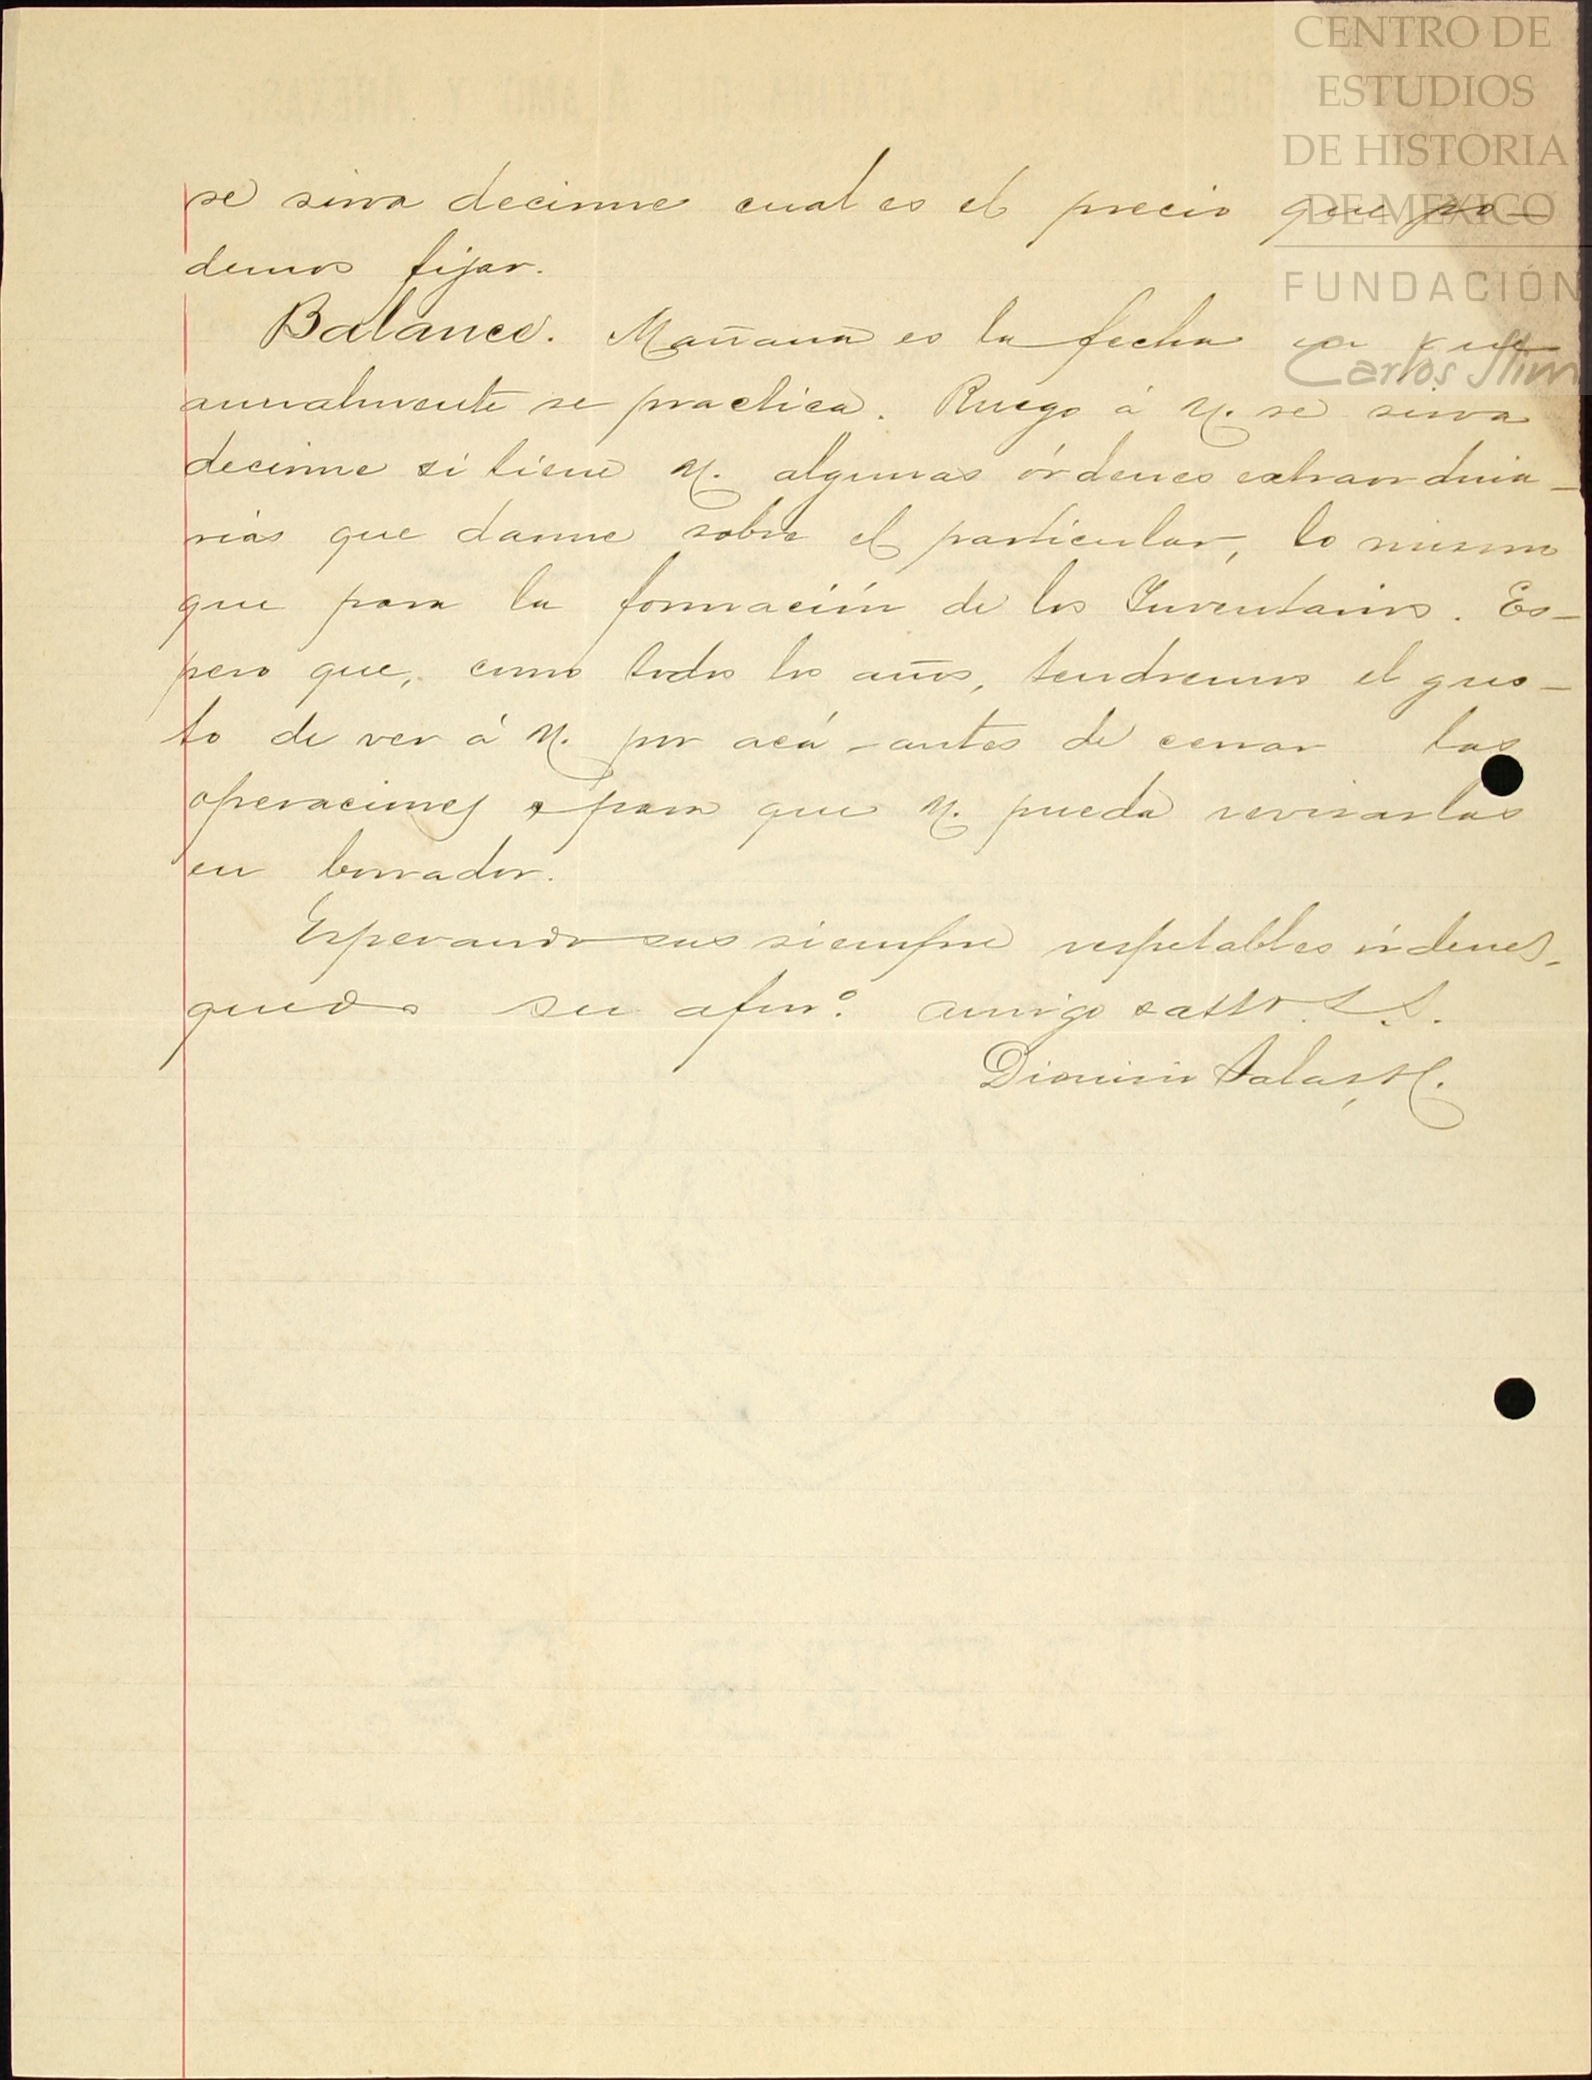 CENTRO DE
ESTUDIOS
DE HISTORIA
DE MEXICO
FUNDACIÓN
Carlos Slim
se sirva decirme cual es el precio que po-
demos fijar.
Balance. Mañana es la fecha en que
anualmente se practica. Ruego á U. se sirva
decirme si tiene U. algunas órdenes extraordina-
rias que darme sobre el particular, lo mismo
que para la formación de los Inventarios. Es-
pero que, como todos los años, tendremos el gus-
to de ver á U. por acá antes de cerrar las
operaciones para que U. pueda revisarlas
en borrador.
Esperando sus siempre respetables órdenes,
quedo su afmo. amigo atto. S. S.
Dionisio Salas, H.